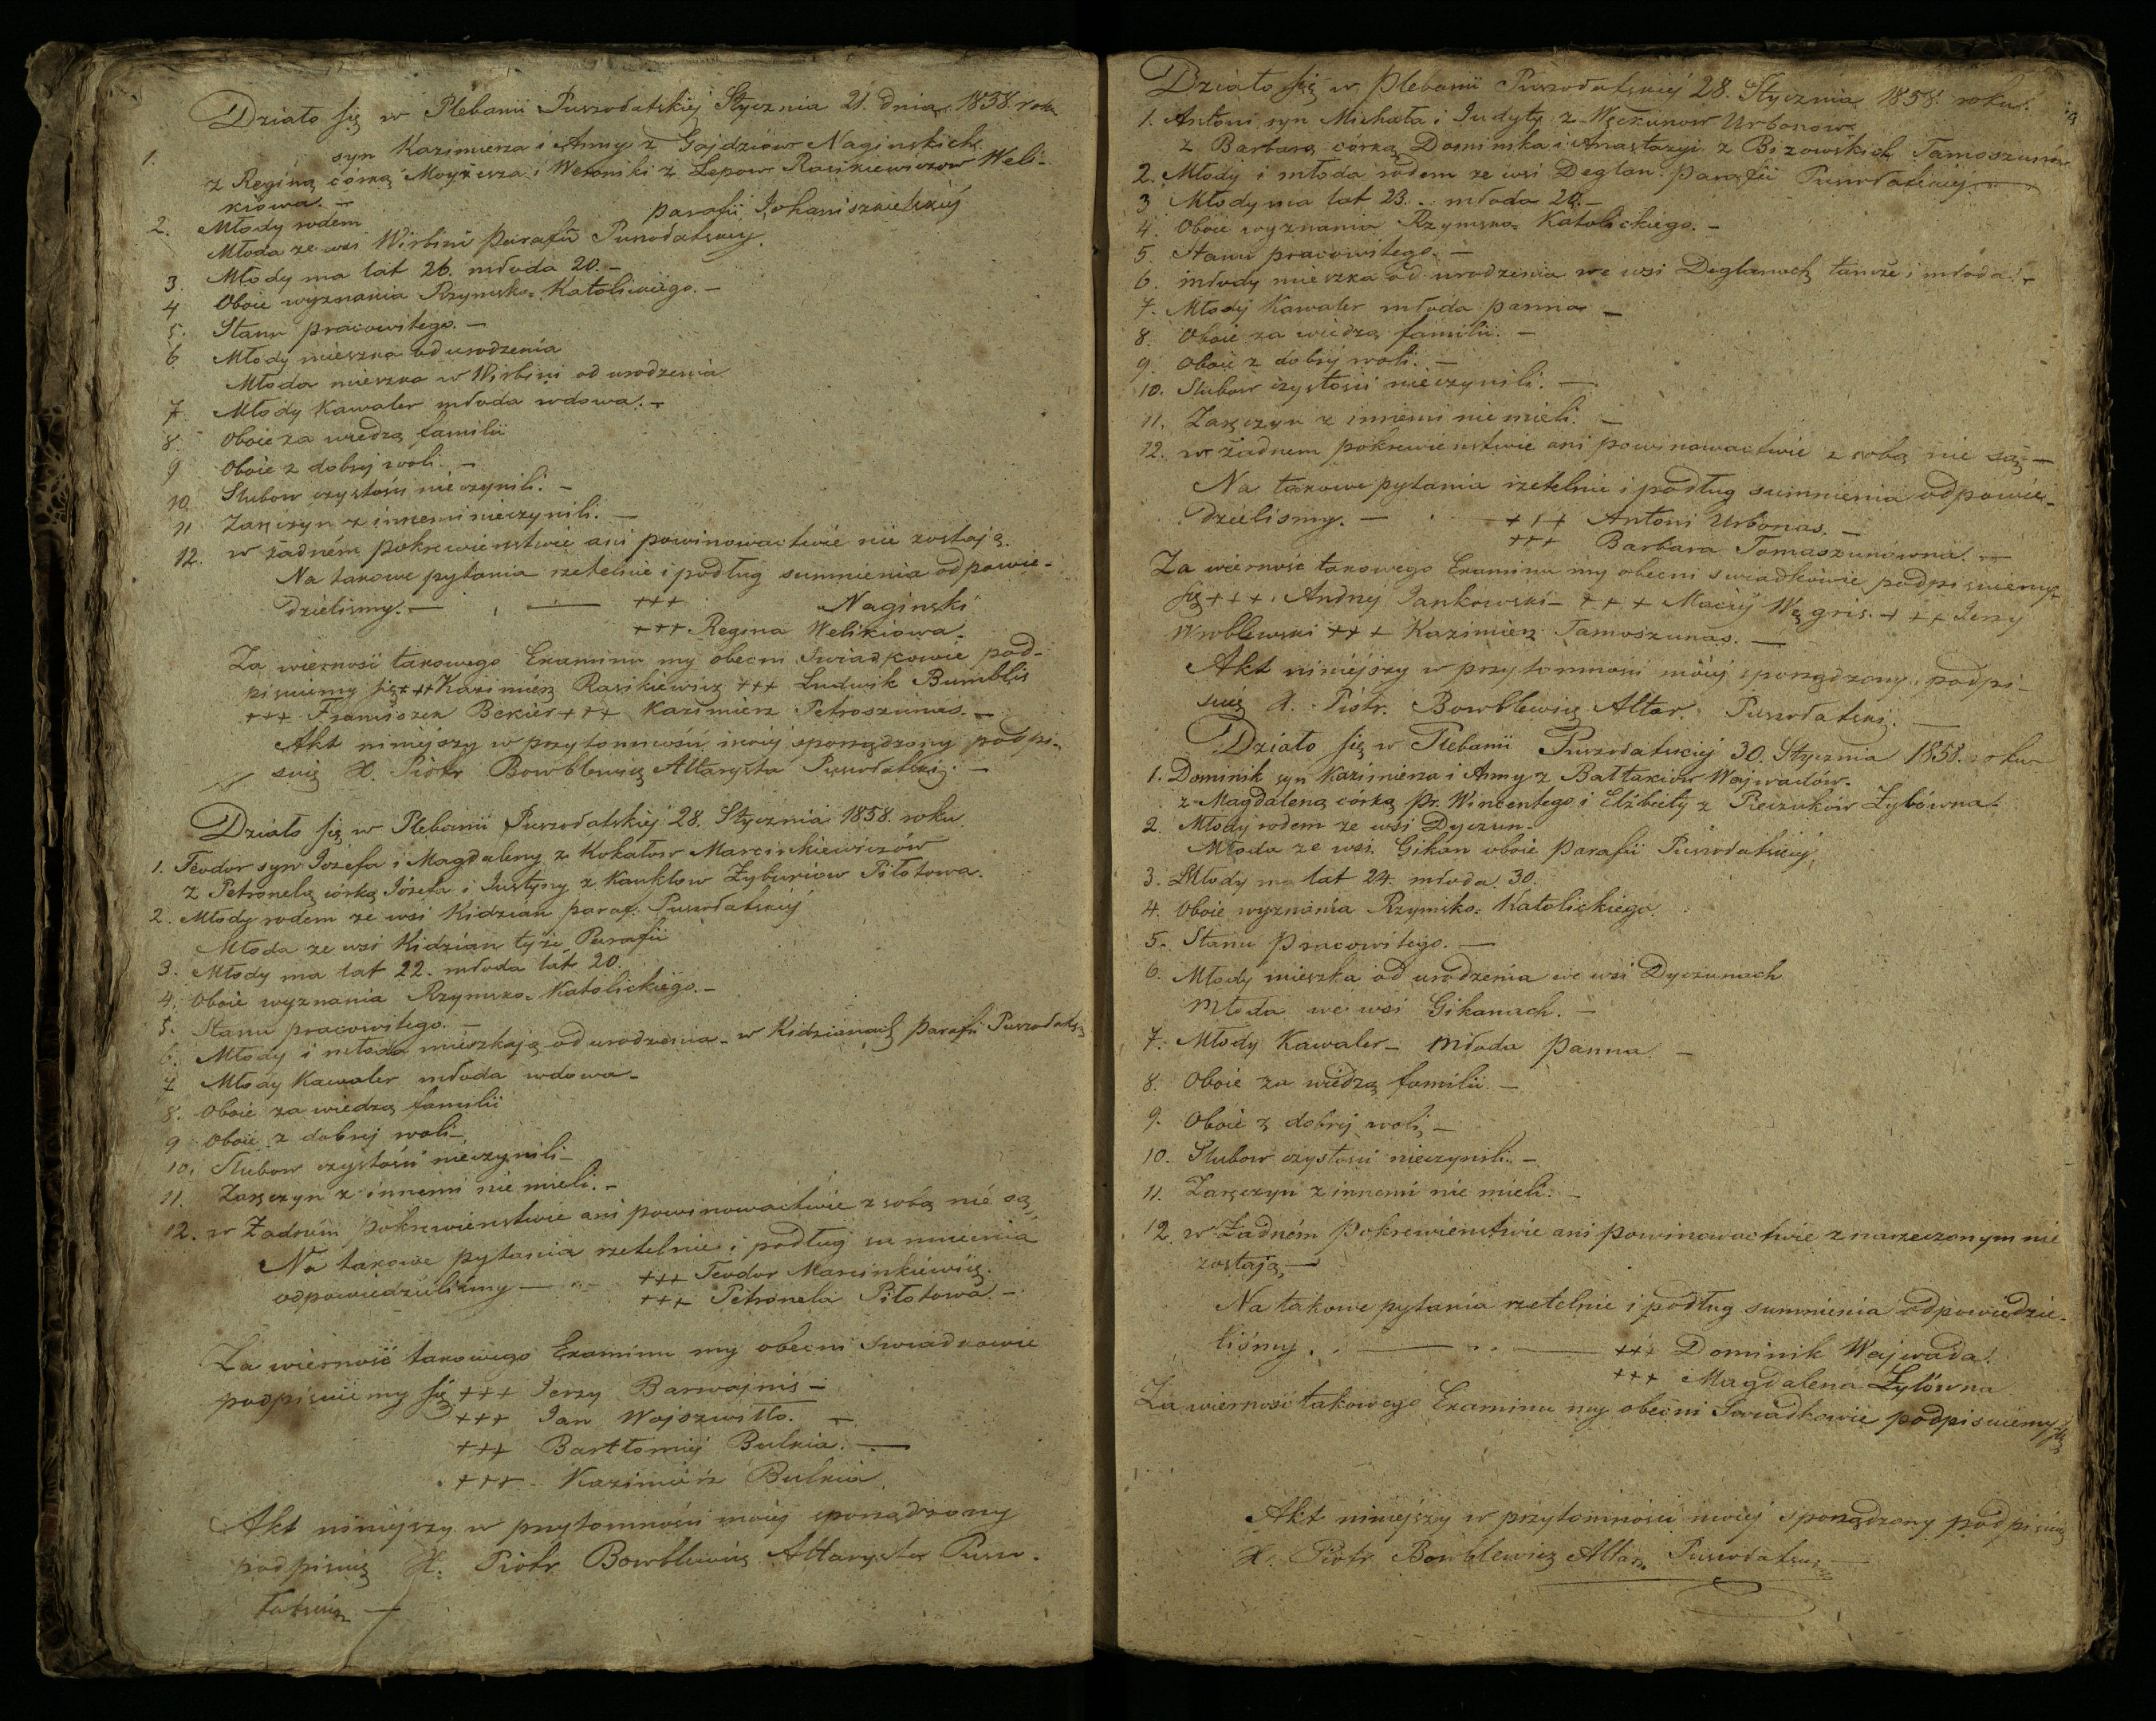 Działo się w Plebanii Puszołatskiej Stycznia 21. dnia 1858 roku
1. syn Kazimierza i Anny z Gajdziów Naginskich
z Reginą córką Moyżesza i Weroniki z Lepow Rasikiewiczow Weli-
kiowa. –
2. Młody rodem parafii Johaniszkielskiej
Młoda ze wsi Wirbini Parafii Puszołatskiej.
3. Młody ma lat 26. młoda 20. –
4 Oboie wyznania Rzymsko-Katolickiego. –
5. Stanu pracowitego. –
6. Młody mieszka od urodzenia
Młoda mieszka w Wirbini od urodzenia
7. Młody Kawaler młoda wdowa. –
8. Oboie za wiedzą familii
9 Oboie z dobrej woli. –
10 Slubow czystości nieczynili. –
11 Zaręczyn z innemi nieczynili. –
12. w żadném pokrewieństwie ani powinowactwie nie zostają.
Na takowe pytania rzetelnie i podług sumnienia odpowie-
dzielismy. – +++ Naginski
+++ Regina Welikiowa.
Za wierność takowego Examinu my obecni Swiadkowie pod-
pisuiemy się +++ Kazimiérz Rasikiewicz +++ Ludwik Bumblis
+++ Franciszek Bekier +++ Kazimierz Petroszunas. –
Akt niniejszy w przytomności moiej sporządzony podpi-
suię X. Piotr Bowblewicz Altarysta Puszołatski. –
Działo się w Plebanii Puszołatskiej 28. Stycznia 1858. roku
1. Teodor syn Jozefa i Magdaleny z Kokałow Marcinkiewiczów
z Petronelą córką Józefa i Justyny z Kauklow Żyburiow Piłotowa.
2. Młody rodem ze wsi Kidzian paraf: Puszołatskiej
Młoda ze wsi Kidzian tyże Parafii
3. Młody ma lat 22. młoda lat 20.
4. Oboie wyznania Rzymsko-Katolickiego. –
5. Stanu pracowitego. –
6. Młody i młoda mieszkają od urodzenia w Kidzianach parafii Puszołatsk
7 Młody Kawaler młoda wdowa –
8. Oboie za wiedzą familii
9 Oboie z dobrej woli –
10. Slubow czystości nieczynili –
11. Zaręczyn z innemi nie mieli. –
12. w Żadném pokrewieństwie ani powinowactwie z sobą nie są,
Na takowe pytania rzetelnie i podług sumnienia
odpowiedzieliśmy – +++ Teodor Marcinkiewicz.
+++ Petronela Piłotowa. –
Za wierność takowego Examinu my obecni swiadkowie
podpisuiemy się +++ Jerzy Barwajnis –
+++ Jan Wojszwiłło. –
+++ Bartłomiej Bulkia. –
+++ Kazimiérz Bulkia
Akt niniejszy w przytomności moiej sporządzony
podpisuię X. Piotr Bowblewicz Altarysta Puszo-
łatski –
Działo się w Plebanii Puszołatskiej 28. Stycznia 1858. roku.
1. Antoni syn Michała i Judyty z Węckunow Urbonow
z Barbarą córką Dominika i Anastazyi z Bizowskich Tamoszunów
2. Młody i młoda rodem ze wsi Deglan parafii Puszołatskiej
3 Młody ma lat 23. młoda 20. –
4. Oboie wyznania Rzymsko-Katolickiego. –
5. Stanu pracowitego. –
6. młody mieszka od urodzenia we wsi Deglanach tamże i młoda. –
7. Młody Kawaler młoda panna –
8. Oboie za wiedzą familii. –
9. Oboie z dobrej woli. –
10. Slubow czystości nieczynili. –
11. Zaręczyn z innemi nie mieli. –
12. w żadnem pokrewienstwie ani powinowactwie z sobą nie są –
Na takowe pytania rzetelnie i podług sumnienia odpowie-
dzielismy. – +++ Antoni Urbonas. –
+++ Barbara Tomaszunówna. –
Za wierność takowego Examinu my obecni swiadkówie podpisuiemy
się +++ Andrzy Jankowski – +++ Maciéj Węgris. +++ Jerzy
Wroblewski +++ Kazimierz Tamoszunas. –
Akt niniejszy w przytomności moiej sporządzony podpi-
suię X. Piotr. Bowblewicz Altar. Puszołatski. –
Działo się w Plebanii Puszołatskiej 30. Stycznia 1858. roku
1. Dominik syn Kazimierza i Anny z Bałtakiow Wajwadów.
z Magdaleną córką pr. Wincentego i Elżbiety z Pieczuków Żylówna.
2. Młody rodem ze wsi Dyczun.
Młoda ze wsi Gikan oboie parafii Puszołatskiej
3. Młody ma lat 24. młoda. 30.
4. Oboie wyznania Rzymsko-Katolickiego.
5. Stanu Pracowitego. –
6. Młody mieszka od urodzenia we wsi Dyczunach
Młoda we wsi Gikanach. –
7. Młody Kawaler – młoda panna –
8. Oboie za wiedzą familii. –
9. Oboie z dobrej woli –
10. Slubow czystości nieczynili. –
11. Zaręczyn z innemi nie mieli. –
12. w Żadném Pokrewieństwie ani powinowactwie z narzeczonym nie
zostają –
Na takowe pytania rzetelnie i podług sumnienia odpowiedzie-
liśmy. – +++ Dominik Wajwada.
+++ Magdalena Żylówna
Za wierność takowego Examinu my obecni Swiadkowie podpisuiemy się
Akt niniejszy w przytomności moiej sporządzony podpisuię
X. Piotr Bowblewicz Altar. Puszołatski –